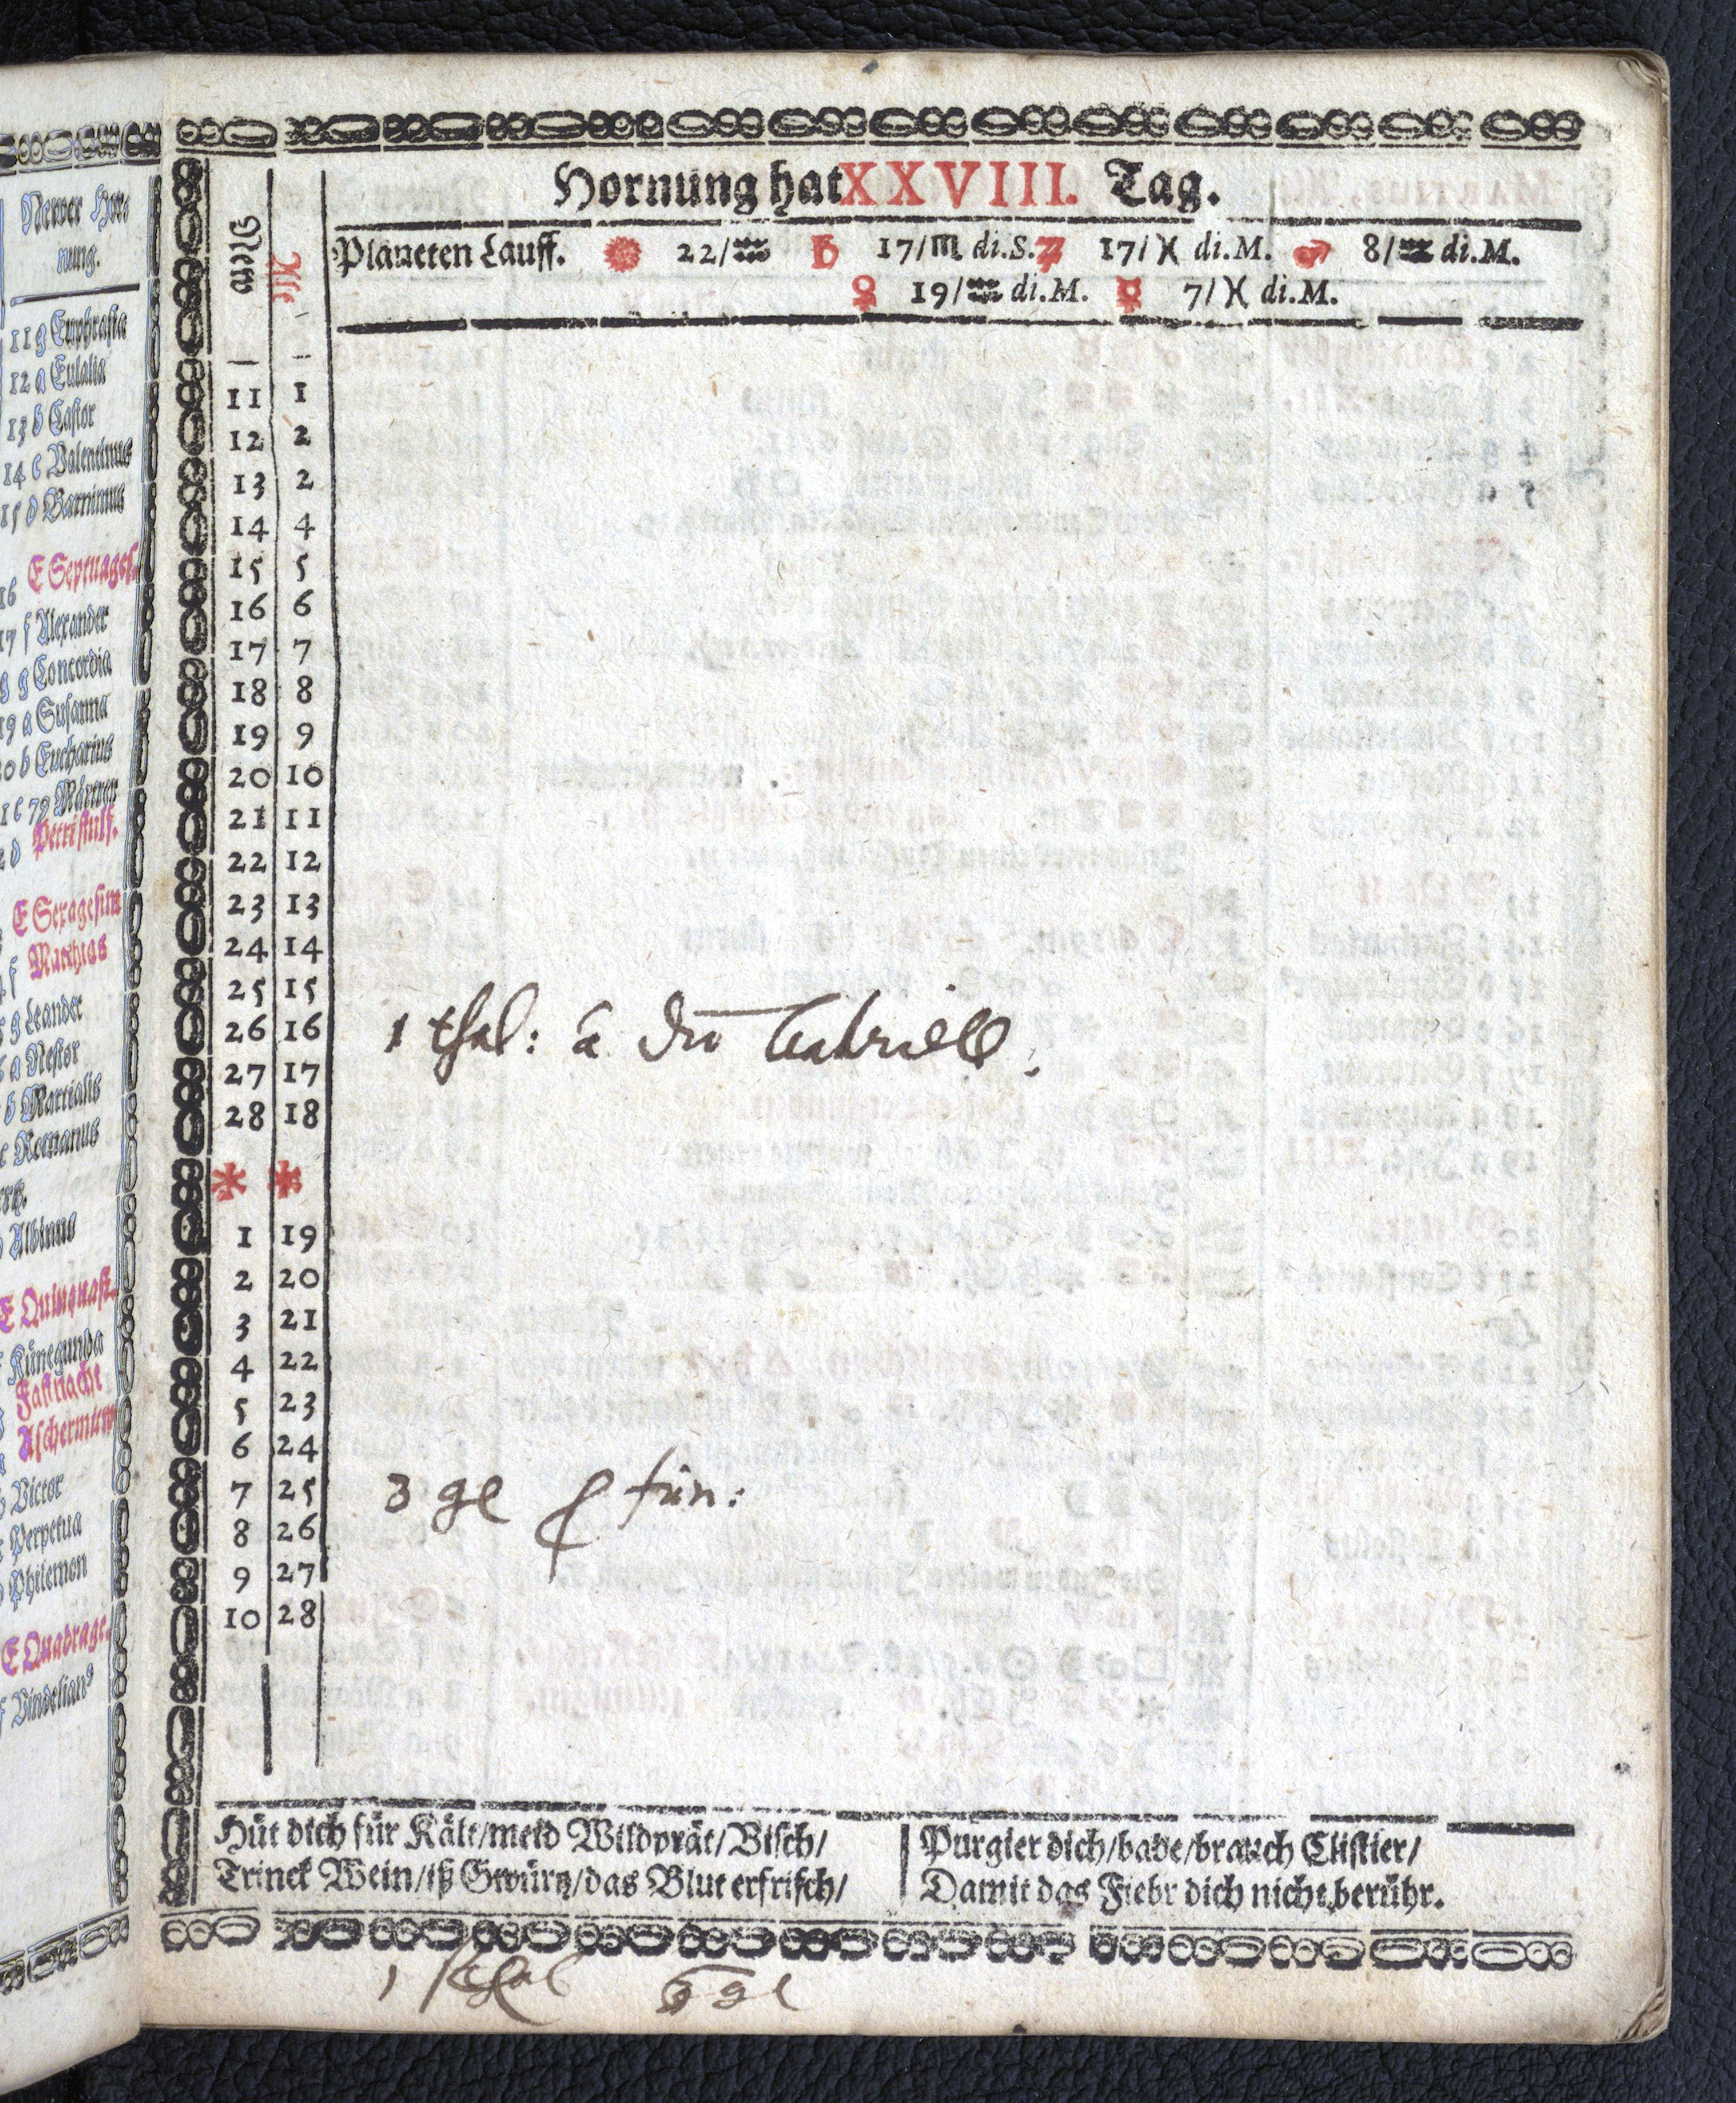 Newer Hor-
nung.
11 g Euphrasia
12 a Eulalia
13 b Castor
14 c Valentinus
15 d
16 E Septuages.
17 f Alexander
g Concordia
19 a Susanna
b Eucharius
c 79 Märtyrer
d Petri stulf.
E Sexagesim
f Matthias
g Leander
a Nestor
b Martialis
c Romanus
Albinus
E Quinquast.
Künegunda
Fastnacht
Aschermitw
Victor
Perpetua
Philemon
E Quadrage.
Hornung hat XXVIII. Tag.
New Alt
Planeten Lauff. ☉ 22/♒ ♄ 17/♏ di.S. ♃ 17/♓ di.M. ♂ 8/♒ di.M.
♀ 19/♒ di.M. ☿ 7/♓ di.M.
11 1
12 2
13 2
14 4
15 5
16 6
17 7
18 8
19 9
20 10
21 11
22 12
23 13
24 14
25 15
26 16 1 thal: à Dn̄o Gabriell.
27 17
28 18
* *
1 19
2 20
3 21
4 22
5 23
6 24
7 25 3 gl
8 26
9 27
10 28
Hüt dich für Kält/meid Wildprät/Visch/
Trinck Wein/iß Gwürtz/das Blut erfrisch/
Purgier dich/bade/brauch Clistier/
Damit das Fiebr dich nicht berühr.
1 thal 3 gl